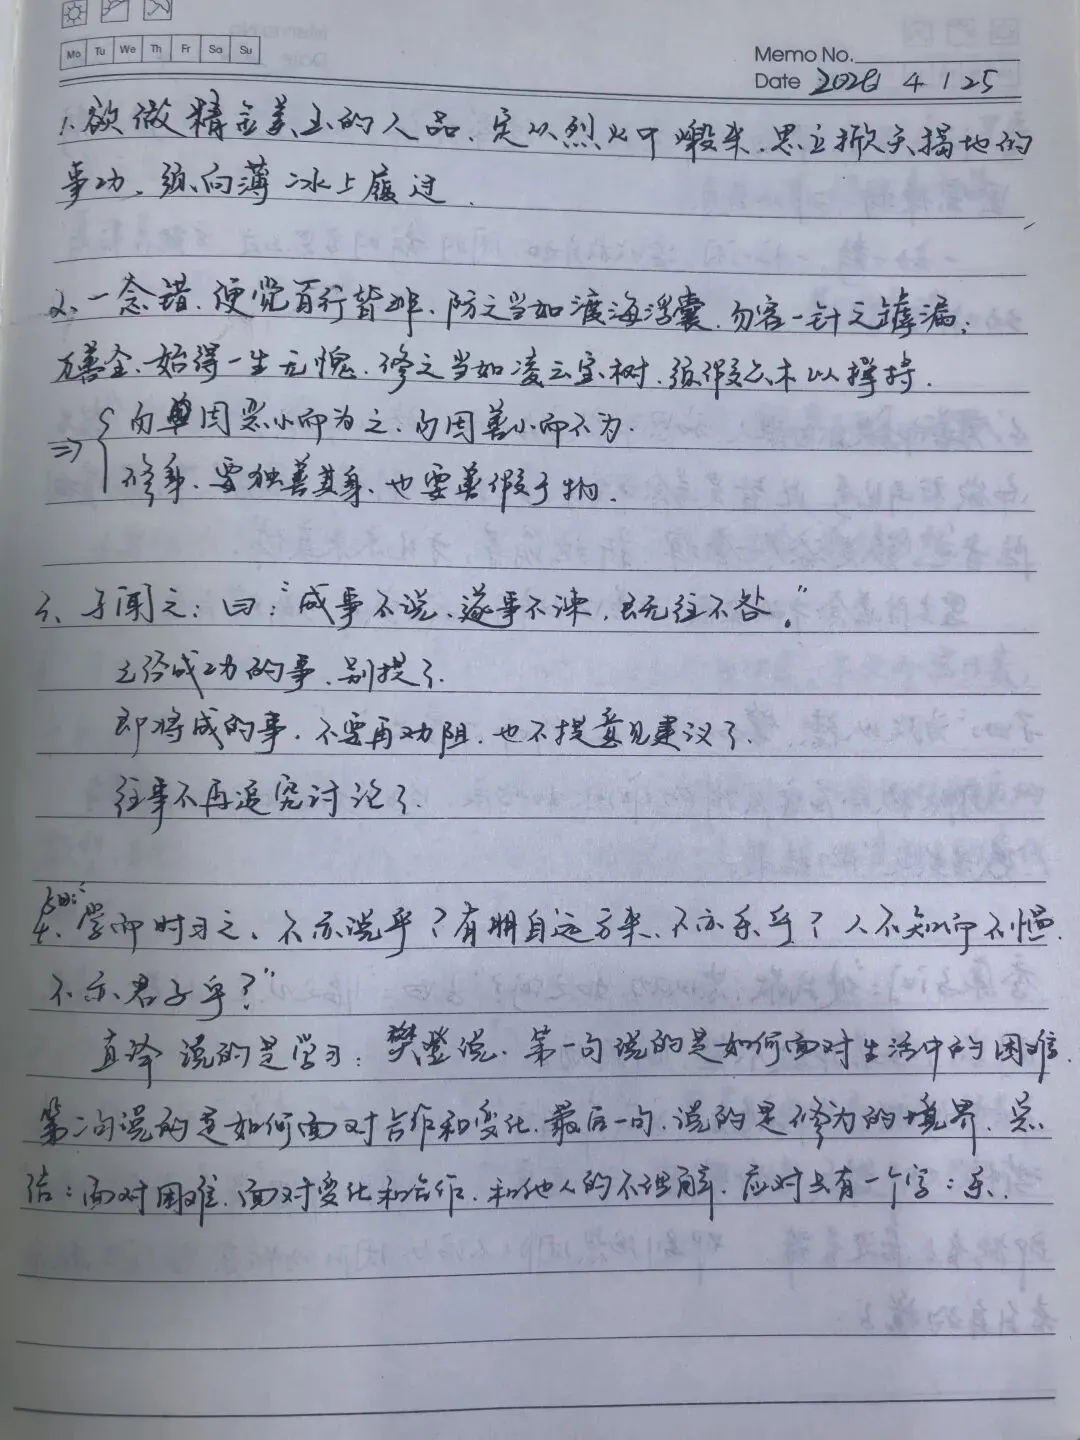 Mo Tu We Th Fr Sa Su
Memo No.
Date 2026 4 / 25
1. 欲做精金美玉的人品、定从烈火中煅来、思立掀天揭地的
事功、须向薄冰上履过.
2. 一念错、便觉百行皆非、防之当如渡海浮囊、勿容一针之罅漏;
万善全、始得一生无愧、修之当如凌云宝树、须假众木以撑持.
⇒ { 勿因恶小而为之、勿因善小而不为.
修身、要独善其身、也要善假于物.
3、子闻之:曰:“成事不说、遂事不谏,既往不咎。”
已经成功的事、别提了.
即将成的事、不要再劝阻、也不提意见建议了.
往事不再追究讨论了.
4、子曰:“学而时习之、不亦说乎?有朋自远方来、不亦乐乎?人不知而不愠、
不亦君子乎?”
直译 说的是学习:樊登说、第一句说的是如何面对生活中的困难
第二句说的是如何面对合作和变化、最后一句、说的是修为的境界、总
结:面对困难、面对变化和合作、和他人的不理解、应对只有一个字:乐.